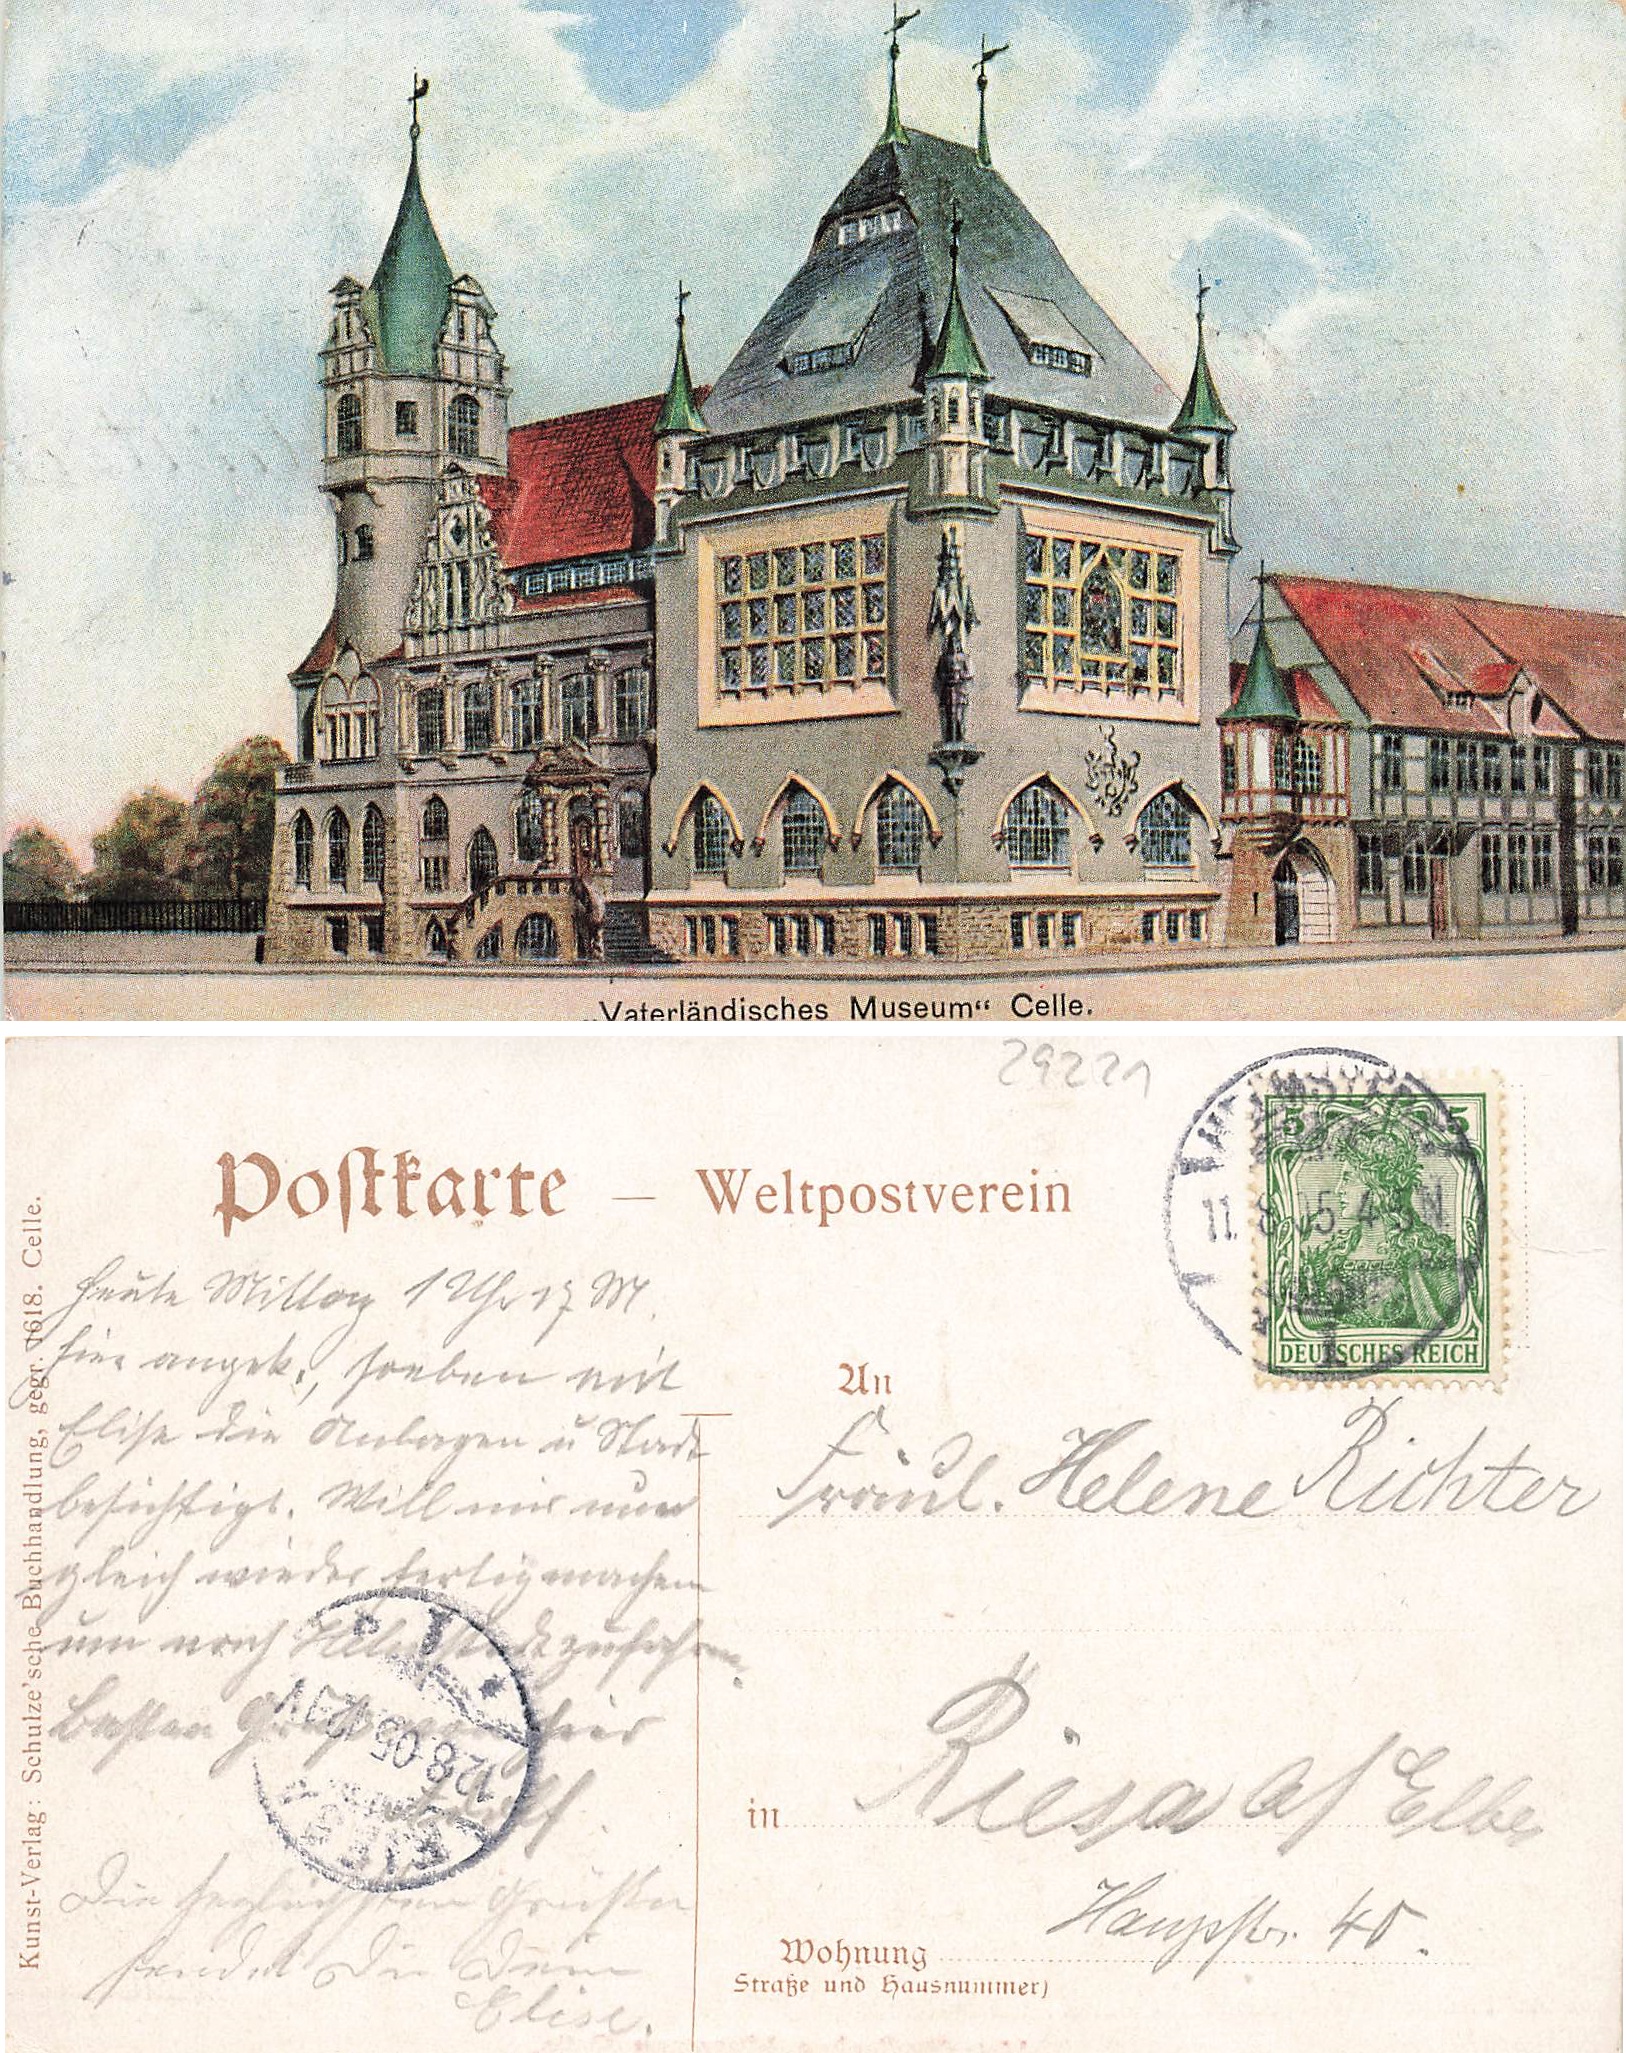 „Vaterländisches Museum“ Celle.
29221
Postkarte — Weltpostverein
5 5
11. 8. 05. 4-5 N
DEUTSCHES REICH
Kunst-Verlag: Schulze'sche Buchhandlung, gegr. 1618. Celle.
Heute Mittag 1 Uhr 17 M.
hier angek., soeben mit
Elise die Anlagen u Stadt
besichtigt. Will mir nun
gleich wieder fertigmachen
um nach zufahren.
Besten Gruß von hier
Die herzlichsten Grüße
sendet Dir Deine
Elise.
12.8.05
An
Fräul. Helene Richter
in Riesa a/Elbe
Hauptstr. 40.
Wohnung
Straße und Hausnummer)